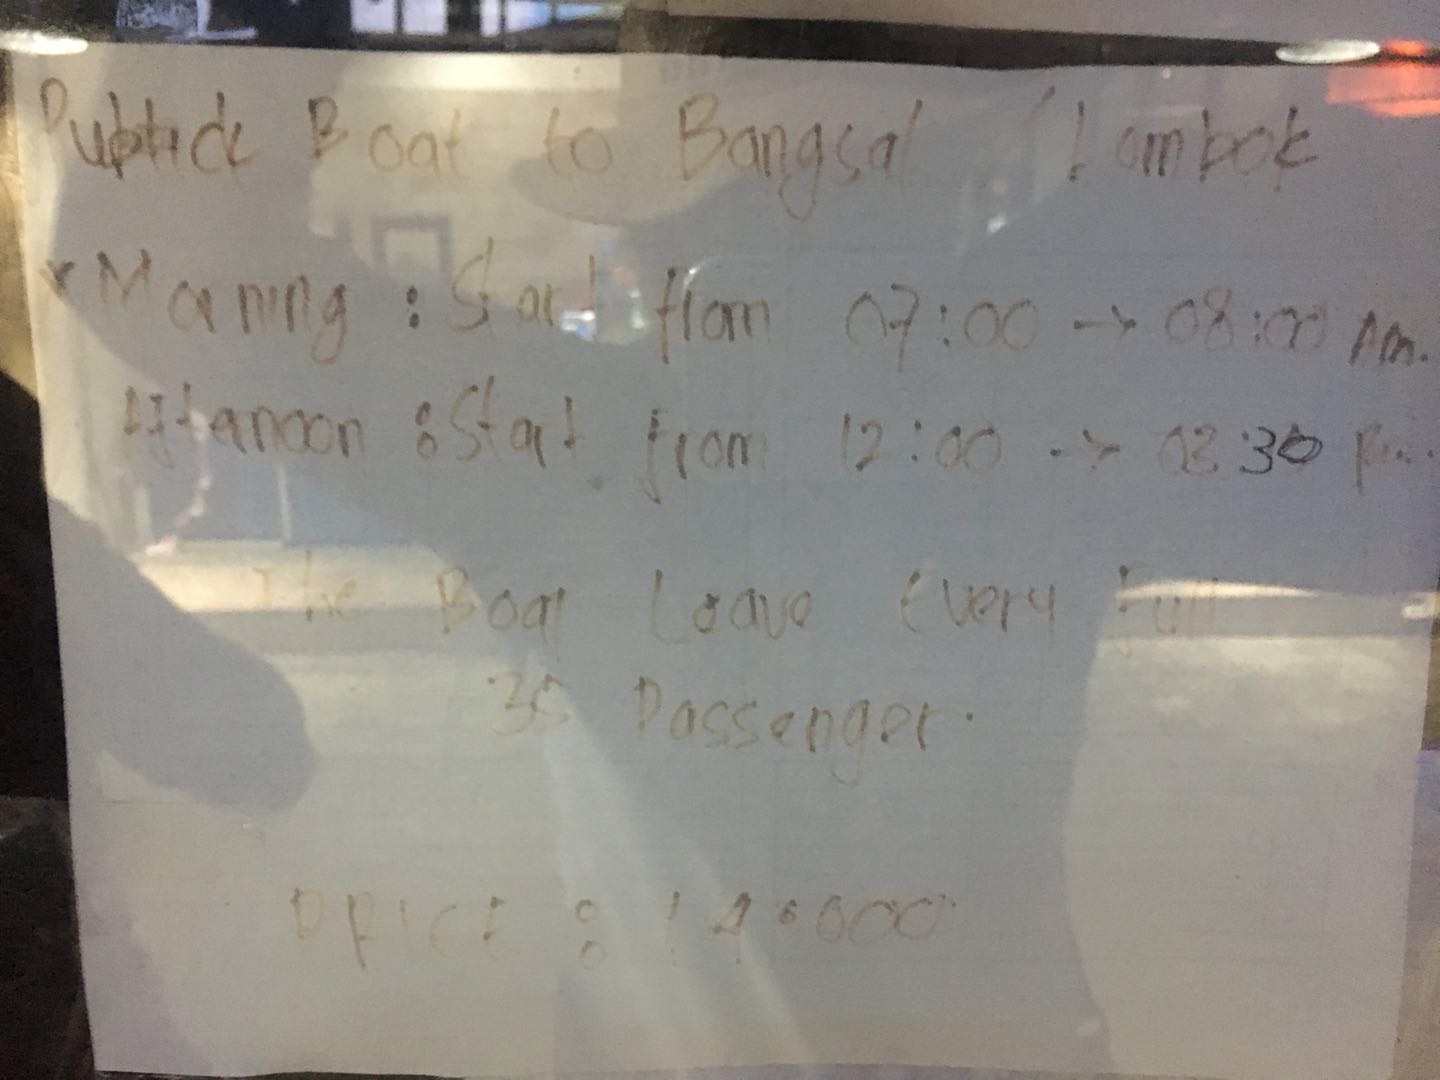 Publick Boat to Bangsal / Lombok
* Morning : Start from 07:00 → 08:00 Am.
Aftanoon : Start from 12:00 → 03:30 Pm.
The Boat Leave Every Full
35 Passenger.
PRICE : 14.000